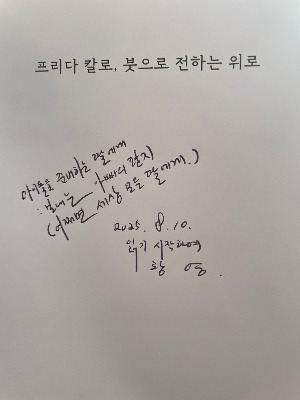 프리다 칼로, 붓으로 전하는 위로
아이돌을 준비하는 딸에게
: 보내는 아빠의 편지
(어쩌면 세상 모든 딸에게.)
2025. 8. 10.
읽기 시작하며
황